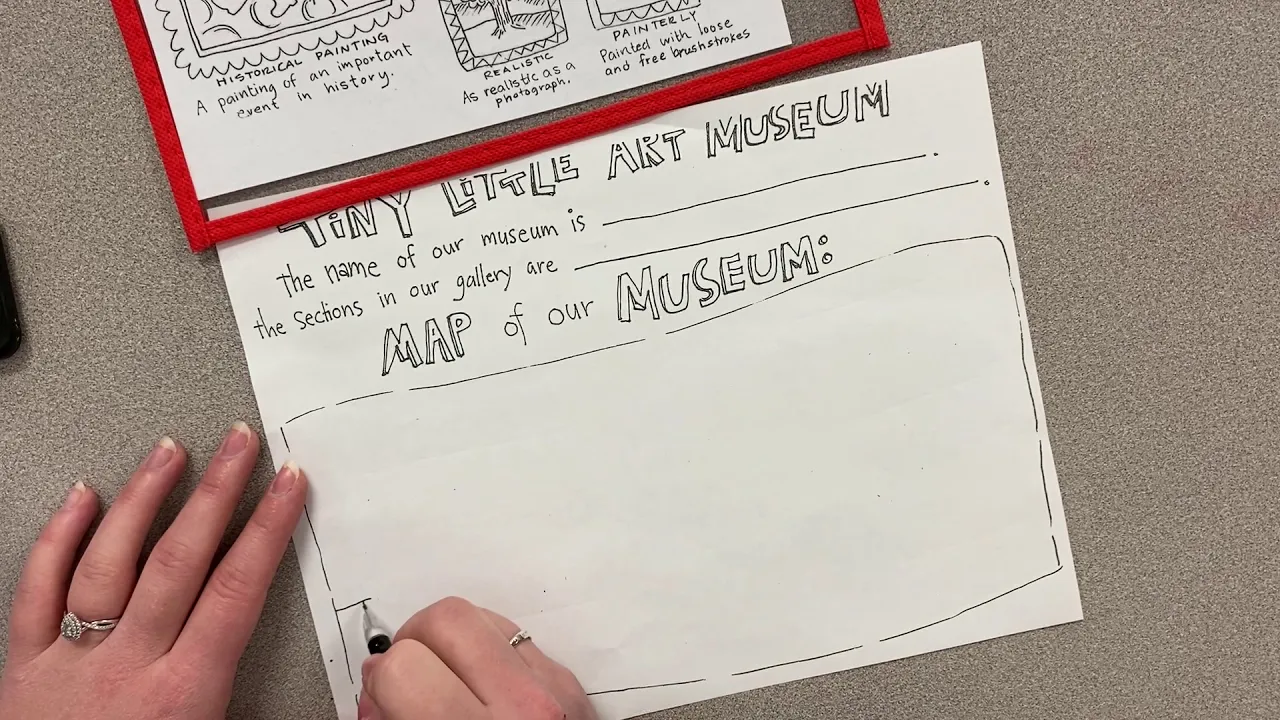 HISTORICAL PAINTING
A painting of an important
event in history.
REALISTIC
As realistic as a
photograph.
PAINTERLY
Painted with loose
and free brushstrokes
TINY LITTLE ART MUSEUM
the name of our museum is .
the sections in our gallery are .
MAP of our MUSEUM: